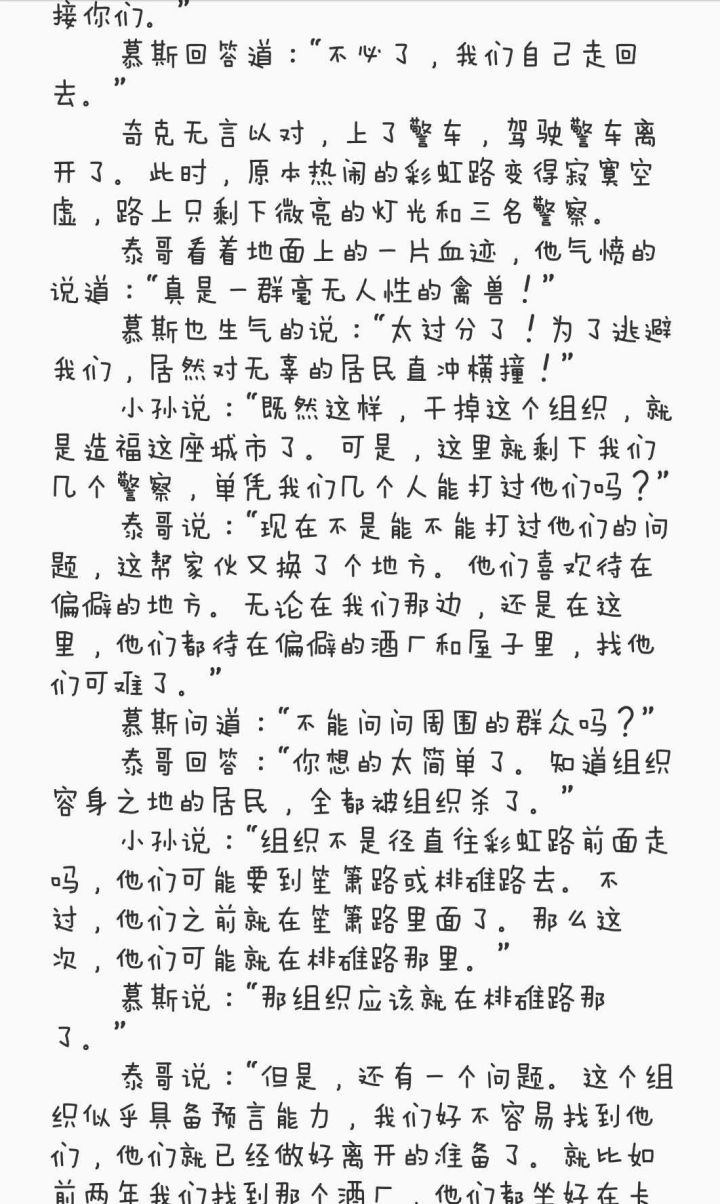 接你们。”
慕斯回答道：“不必了，我们自己走回
去。”
奇克无言以对，上了警车，驾驶警车离
开了。此时，原本热闹的彩虹路变得寂寞空
虚，路上只剩下微亮的灯光和三名警察。
泰哥看着地面上的一片血迹，他气愤的
说道：“真是一群毫无人性的禽兽！”
慕斯也生气的说：“太过分了！为了逃避
我们，居然对无辜的居民直冲横撞！”
小孙说：“既然这样，干掉这个组织，就
是造福这座城市了。可是，这里就剩下我们
几个警察，单凭我们几个人能打过他们吗？”
泰哥说：“现在不是能不能打过他们的问
题，这帮家伙又换了个地方。他们喜欢待在
偏僻的地方。无论在我们那边，还是在这
里，他们都待在偏僻的酒厂和屋子里，找他
们可难了。”
慕斯问道：“不能问问周围的群众吗？”
泰哥回答：“你想的太简单了。知道组织
容身之地的居民，全都被组织杀了。”
小孙说：“组织不是径直往彩虹路前面走
吗，他们可能要到笙箫路或桃碓路去。不
过，他们之前就在笙箫路里面了。那么这
次，他们可能就在桃碓路那里。”
慕斯说：“那组织应该就在桃碓路那
了。”
泰哥说：“但是，还有一个问题。这个组
织似乎具备预言能力，我们好不容易找到他
们，他们就已经做好离开的准备了。就比如
前两年我们找到那个酒厂，他们都坐好在卡